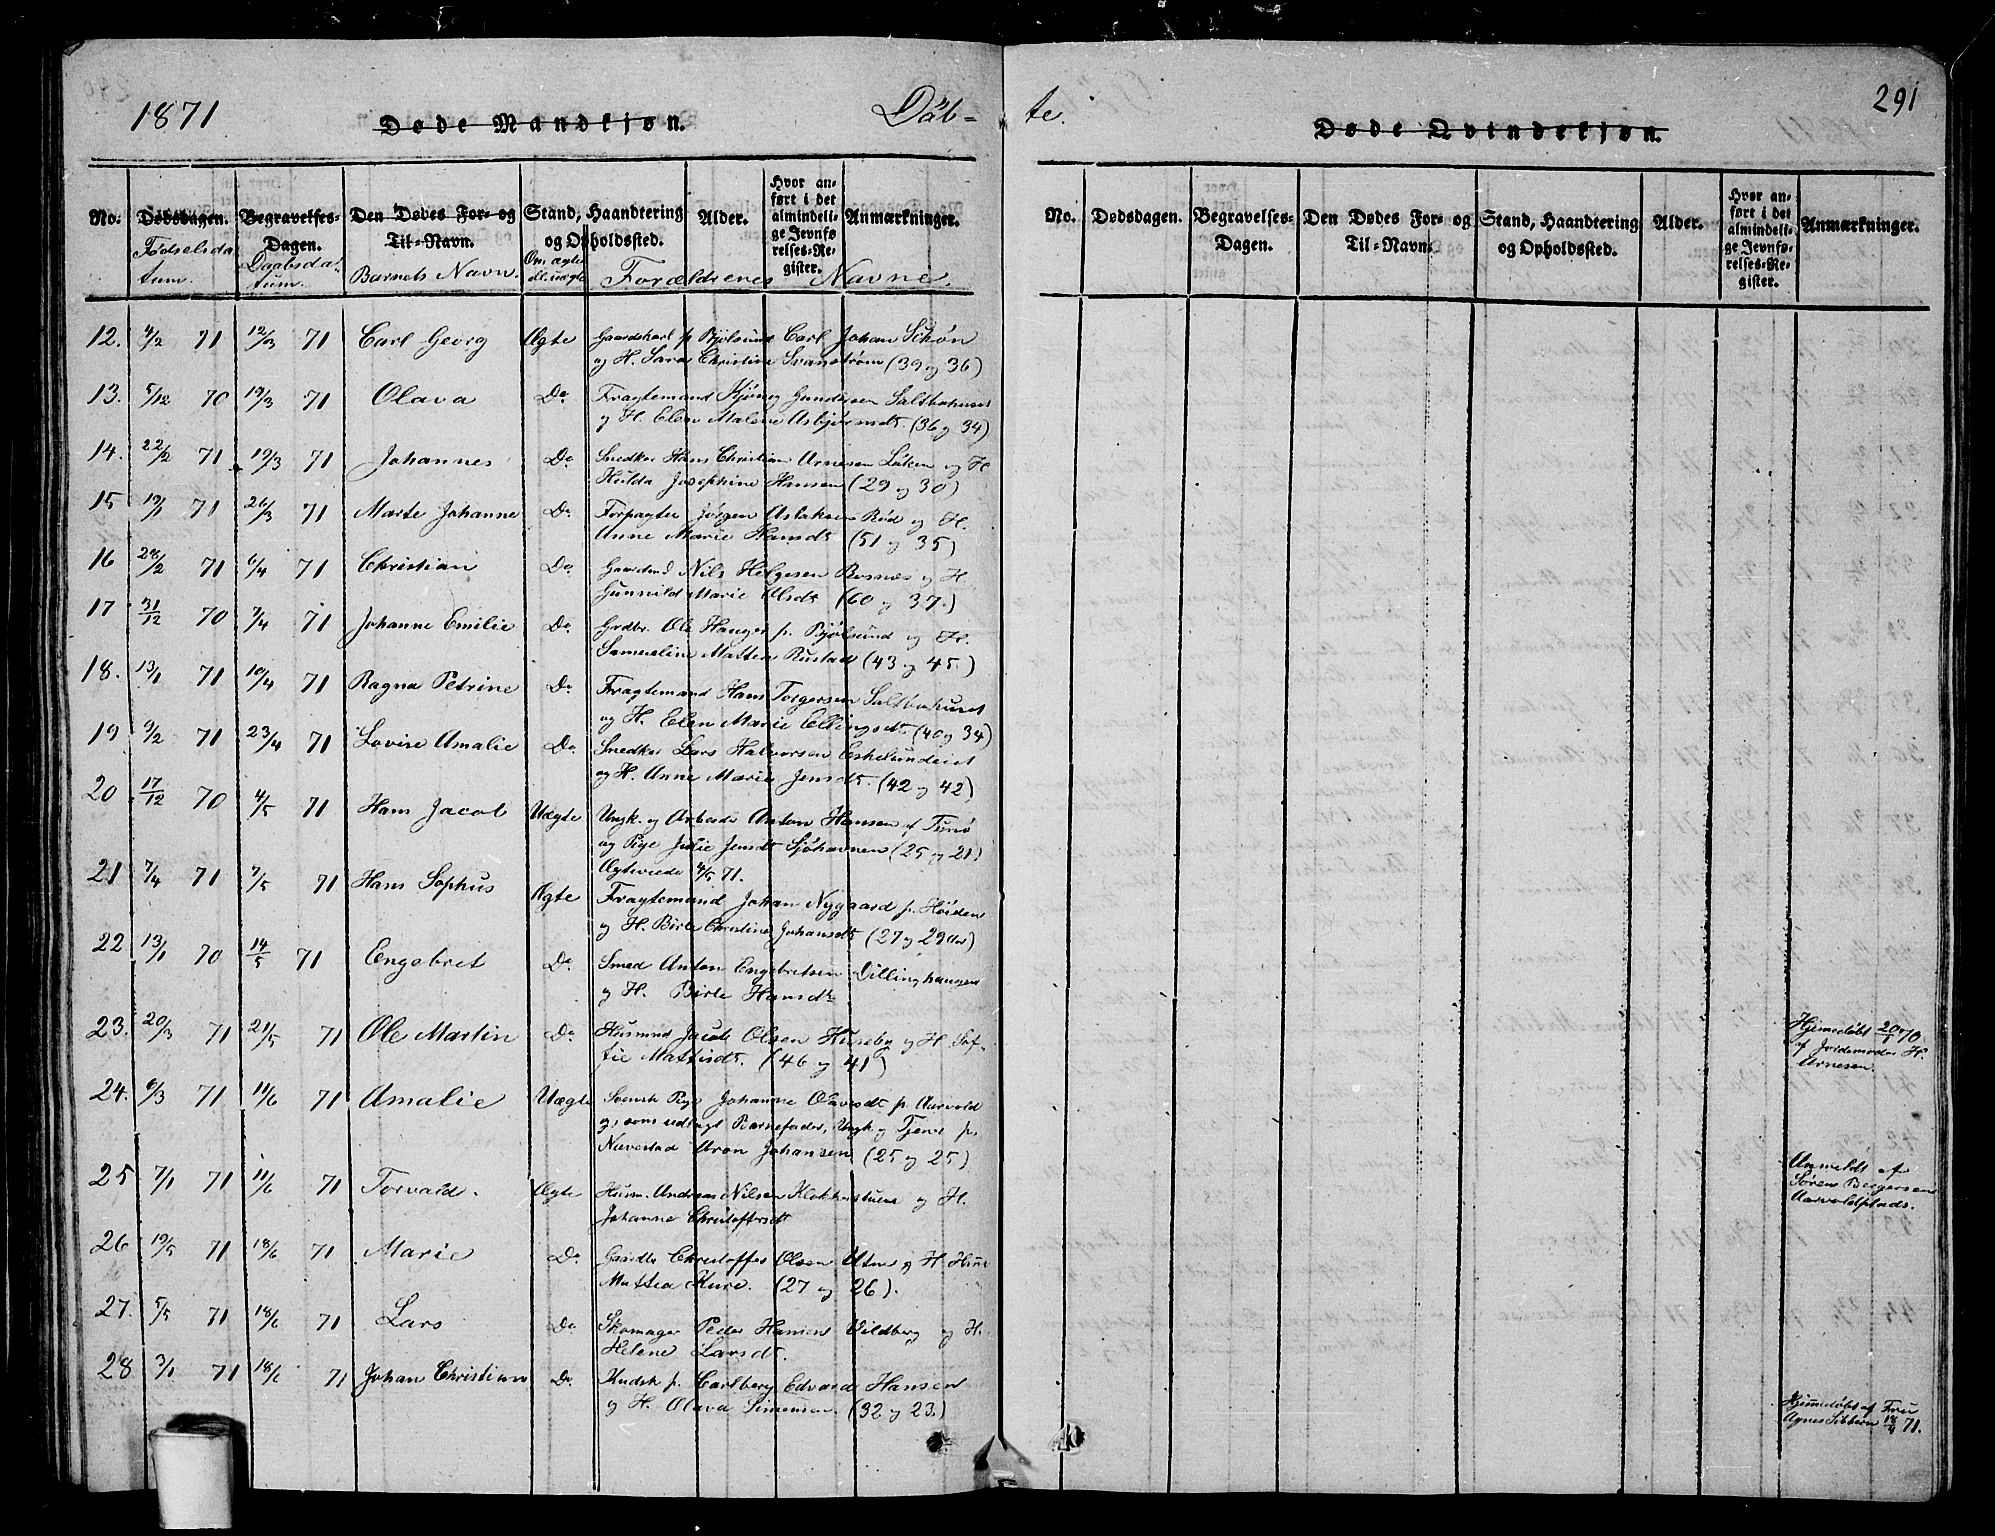 1871
Døde Mandkjøn.
Døb-
te.
Døde Qvindekjøn.
291
No. Dødsdagen. Begravelses-Dagen. Den Dødes For- og Til-Navn. Stand, Haandtering og Opholdssted. Alder. Hvor anført i det almindelige Jevnførelses-Register. Anmærkninger.
Fødselsdatum. Daabsdatum. Barnets Navn. Om ægte ell. uægte Forældrenes Navne.
No. Dødsdagen. Begravelses-Dagen. Den Dødes For- og Til-Navn. Stand, Haandtering og Opholdssted. Alder. Hvor anført i det almindelige Jevnførelses-Register. Anmærkninger.
12. 4/2 71 12/3 71 Carl Georg Ægte Gaardskarl p. Bjølsund Carl Johan Schøn
og H. Sara Christine Svanstrøm (39 og 36)
13. 5/12 70 19/3 71 Olava Do Fragtemand Gundersen Saltbohuset
og H. Elen Malene Asbjørnsdt. (36 og 34)
14. 22/2 71 19/3 71 Johannes Do Snedker Hans Christian Arnesen Løken og H.
Hulda Josephine Hansen (29 og 30)
15 19/1 71 26/3 71 Marte Johanne Do Forpagter Jørgen Aslaksen Rød og H.
Anne Marie Hansdt (51 og 35)
16 28/2 71 6/4 71 Christian Do Gaardmd Nils Helgesen Bosnæs og H.
Gunnild Marie Olsdt (60 og 37.)
17 31/12 70 7/4 71 Johanne Emilie Do Grdbr. Ole Hanger p. Bjølsund og H.
Samueline Mattea Rustad (43 og 45.)
18. 13/1 71 10/4 71 Ragna Petrine Do Fragtemand Hans Torgersen Saltbohuset
og H. Elen Marie Ellingsdt. (40 og 34)
19 9/2 71 23/4 71 Lovise Amalie Do Snedker Lars Halvorsen Eskelundeiet
og H. Anne Marie Jensdt. (42 og 42)
20 17/12 70 4/5 71 Hans Jacob Uægte Ungk. og Arbeider Anton Hansen af Tunø
og Pige Julie Jensdt Sjøhavnen (25 og 21)
Ægteviede 4/5 71.
21 7/4 71 7/5 71 Hans Sophus Ægte Fragtemand Johan Nygaard p. Høiden
og H. Birte Christine Johansdt (27 og 29 Aar)
22 13/1 70 14/5 71 Engebret Do Smed Anton Engebretsen Dillinghaugen
og H. Birte Hansdt
23. 20/3 71 21/5 71 Ole Martin Do Husmd Jacob Olsen Huseby og H. Sof-
fie Mattisdt. (46 og 41)
Hjemedøbt 20/1 70
af Jordemoder H.
Arnesen.
24. 6/3 71 11/6 71 Amalie Uægte Svensk Pige Johanne Olavesdt p. Aarvold
og, som udlagt Barnefader, Ungk. og Tjener p.
Navestad Aron Johansen (25 og 25)
25 7/1 71 11/6 71 Torvald. Ægte Husm. Andreas Nilsen Klokkestuen og H.
Johanne Christoffersdt
Anmeldt af
Søren Bergersen
Aarvoldplads.
26 19/5 71 18/6 71 Marie Do Christoffer Olsen og H.
Mattea Kure. (27 og 26).
27. 5/5 71 18/6 71 Lars Do Skomager Peder Hansen Vildberg og H.
Helene Larsdt.
28 3/1 71 18/6 71 Johan Christian Do Kudsk p. Carlberg Edvard Hansen
og H. Olava Simensen. (32 og 23.)
Hjemedøbt af Fru
Agnes Sibbern 18/4 71.